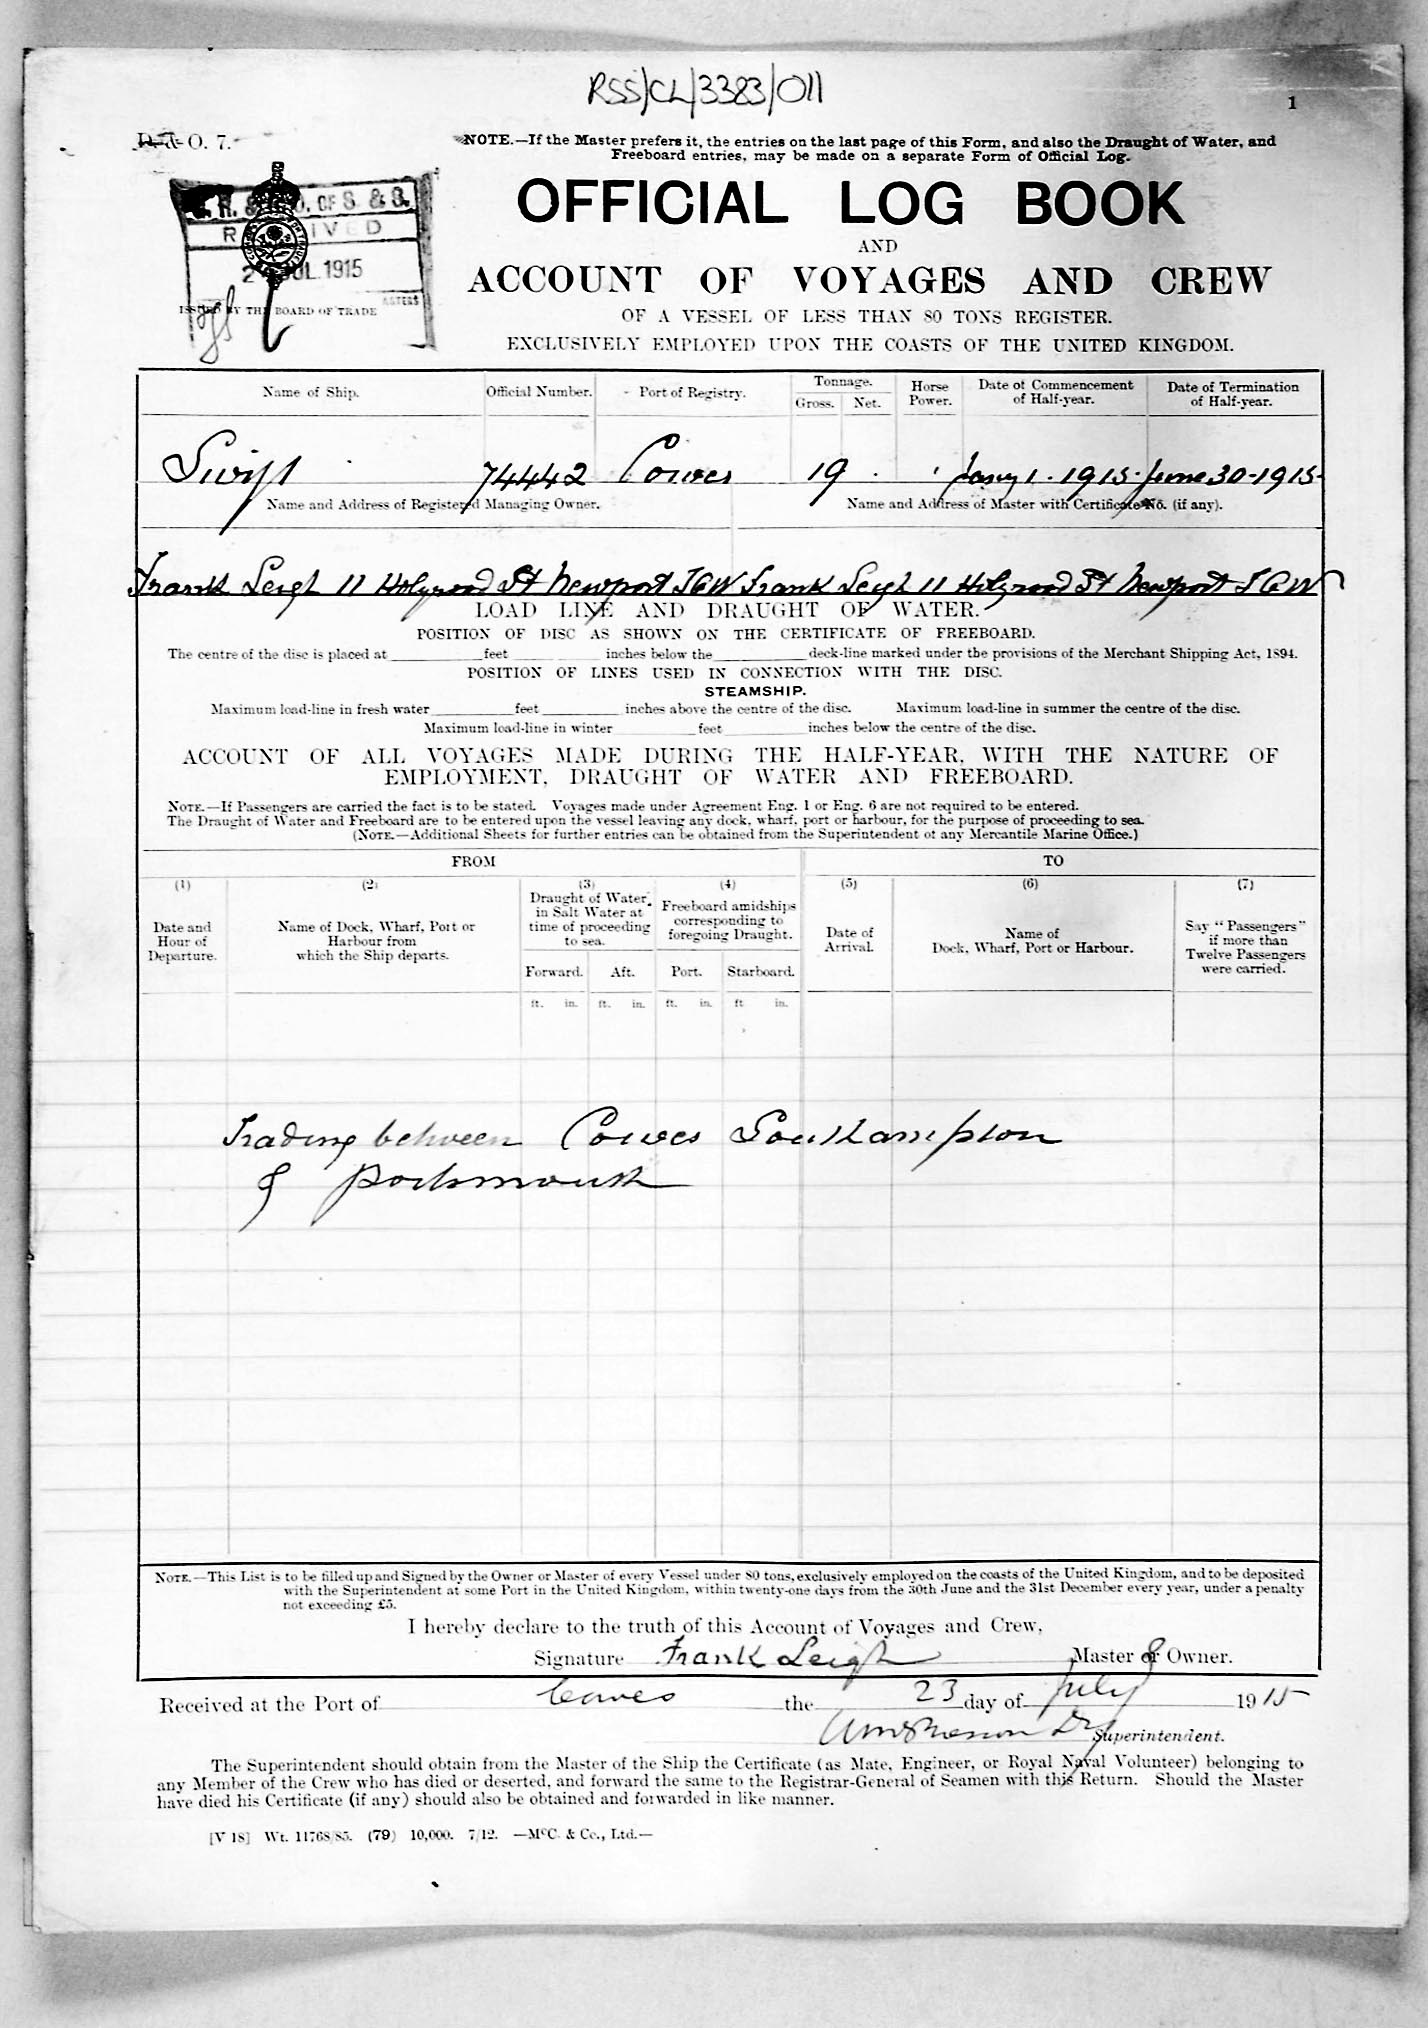 RSS/CL/3383/011
1
O. 7.
NOTE.—If the Master prefers it, the entries on the last page of this Form, and also the Draught of Water, and
Freeboard entries, may be made on a separate Form of Official Log.
OFFICIAL LOG BOOK
AND
ACCOUNT OF VOYAGES AND CREW
OF A VESSEL OF LESS THAN 80 TONS REGISTER.
EXCLUSIVELY EMPLOYED UPON THE COASTS OF THE UNITED KINGDOM.
OF S. & S.
JUL 1915
ISSUED BY THE BOARD OF TRADE
Name of Ship. Official Number. Port of Registry. Tonnage. Horse Power. Date of Commencement of Half-year. Date of Termination of Half-year.
Gross. Net.
Swift 74442 Cowes 19 Jany 1. 1915. June 30-1915-
Name and Address of Registered Managing Owner. Name and Address of Master with Certificate No. (if any).
Frank Leigh 11 Holyrood St Newport I O W Frank Leigh 11 Holyrood St Newport I O W
LOAD LINE AND DRAUGHT OF WATER.
POSITION OF DISC AS SHOWN ON THE CERTIFICATE OF FREEBOARD.
The centre of the disc is placed at feet inches below the deck-line marked under the provisions of the Merchant Shipping Act, 1894.
POSITION OF LINES USED IN CONNECTION WITH THE DISC.
STEAMSHIP.
Maximum load-line in fresh water feet inches above the centre of the disc. Maximum load-line in summer the centre of the disc.
Maximum load-line in winter feet inches below the centre of the disc.
ACCOUNT OF ALL VOYAGES MADE DURING THE HALF-YEAR, WITH THE NATURE OF
EMPLOYMENT, DRAUGHT OF WATER AND FREEBOARD.
NOTE.—If Passengers are carried the fact is to be stated. Voyages made under Agreement Eng. 1 or Eng. 6 are not required to be entered.
The Draught of Water and Freeboard are to be entered upon the vessel leaving any dock, wharf, port or harbour, for the purpose of proceeding to sea.
(NOTE.—Additional Sheets for further entries can be obtained from the Superintendent of any Mercantile Marine Office.)
FROM TO
(1) (2) (3) (4) (5) (6) (7)
Date and Hour of Departure.
Name of Dock, Wharf, Port or Harbour from which the Ship departs.
Draught of Water in Salt Water at time of proceeding to sea.
Freeboard amidships corresponding to foregoing Draught.
Date of Arrival.
Name of Dock, Wharf, Port or Harbour.
Say "Passengers" if more than Twelve Passengers were carried.
Forward. Aft. Port. Starboard.
ft. in. ft. in. ft. in. ft in.
Trading between Cowes Southampton
& Portsmouth
NOTE.—This List is to be filled up and Signed by the Owner or Master of every Vessel under 80 tons, exclusively employed on the coasts of the United Kingdom, and to be deposited
with the Superintendent at some Port in the United Kingdom, within twenty-one days from the 30th June and the 31st December every year, under a penalty
not exceeding £5.
I hereby declare to the truth of this Account of Voyages and Crew,
Signature Frank Leigh Master & Owner.
Received at the Port of Cowes the 23 day of July 1915
Superintendent.
The Superintendent should obtain from the Master of the Ship the Certificate (as Mate, Engineer, or Royal Naval Volunteer) belonging to
any Member of the Crew who has died or deserted, and forward the same to the Registrar-General of Seamen with this Return. Should the Master
have died his Certificate (if any) should also be obtained and forwarded in like manner.
[V 18] Wt. 11768/85. (79) 10,000. 7/12. —McC. & Co., Ltd.—